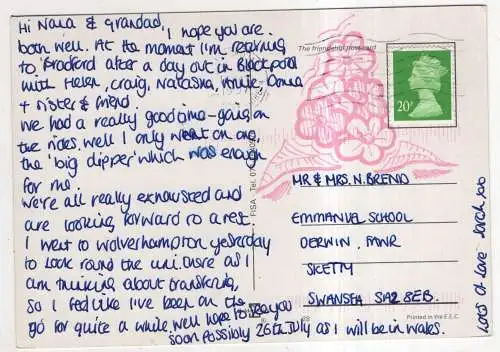 Hi Nana & Grandad,
I hope you are
both well. At the moment I'm returning
to Bradford after a day out in Blackpool
with Helen, Craig, Natasha, Donna
+ sister & friend.
We had a really good time - going on
the rides, well I only went on one,
the 'big dipper' which was enough
for me.
We're all really exhausted and
are looking forward to a rest.
I went to Wolverhampton yesterday
to look round the uni. there as I
am thinking about transfering,
so I feel like I've been on the
go for quite a while. Well hope to see you
soon possibly 26th July as I will be in Wales.
Lots of Love Sarah xxx
The friendship postcard
20P
MR & MRS. N. BREND
EMMANUEL SCHOOL
DERWIN FAWR
SKETTY
SWANSEA SA2 8EB.
Printed in the E.E.C.
FISA - Tel.